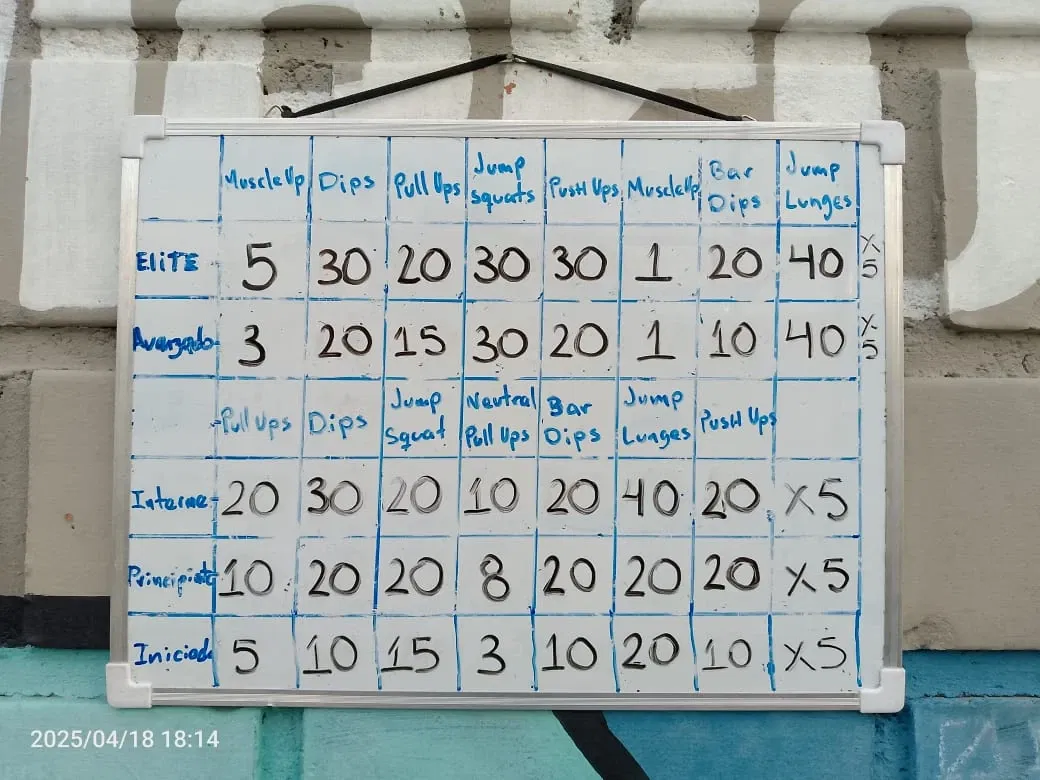 MuscleUp Dips Pull Ups Jump Squats PusH Ups MuscleUp Bar Dips Jump Lunges
EliTE 5 30 20 30 30 1 20 40 X5
Avanzado 3 20 15 30 20 1 10 40 X5
Pull Ups Dips Jump Squat Neutral Pull Ups Bar Dips Jump Lunges PusH Ups
Interme 20 30 20 10 20 40 20 X5
Principiate 10 20 20 8 20 20 20 X5
Iniciado 5 10 15 3 10 20 10 X5
2025/04/18 18:14